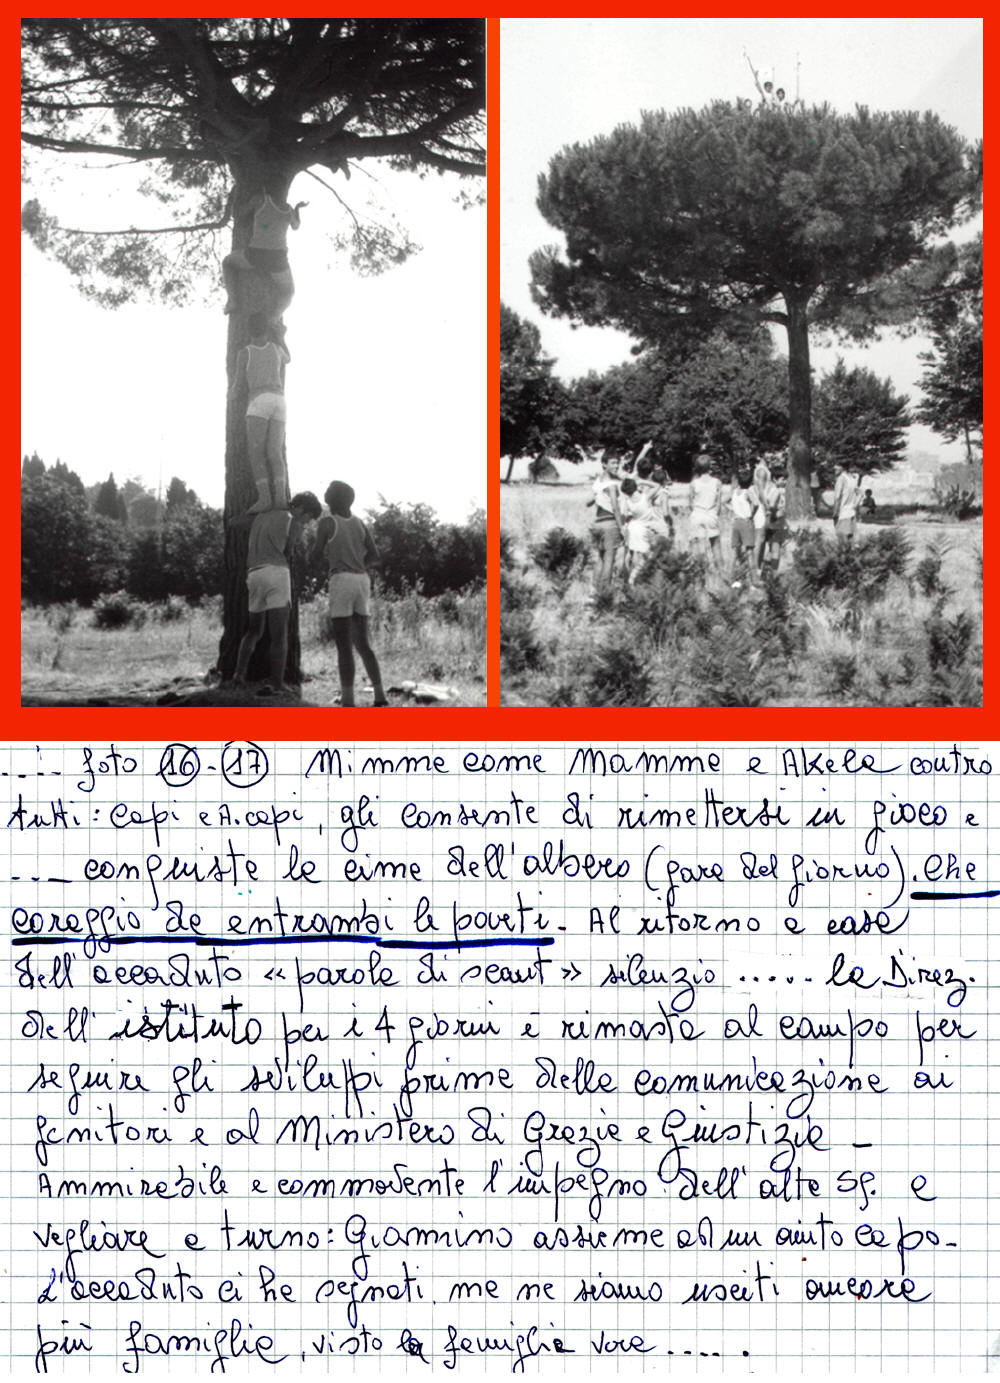 ..... foto 16 - 17 Mimma come Mamma e Akela contro
tutti: Capi e A.capi, gli consente di rimettersi in gioco e
... conquista la cima dell'albero (gara del giorno). Che
coraggio da entrambi le parti. Al ritorno a casa
dell'accaduto « parola di scout » silenzio ..... la Direz.
dell'istituto per i 4 giorni è rimasta al campo per
seguire gli sviluppi prima della comunicazione ai
genitori e al Ministero di Grazia e Giustizia -
Ammirabile e commovente l'impegno dell'alta Sq. a
vegliare a turno: Giannino assieme ad un aiuto capo.
L'accaduto ci ha segnati, ma ne siamo usciti ancora
più famiglia, visto la famiglia vera .....